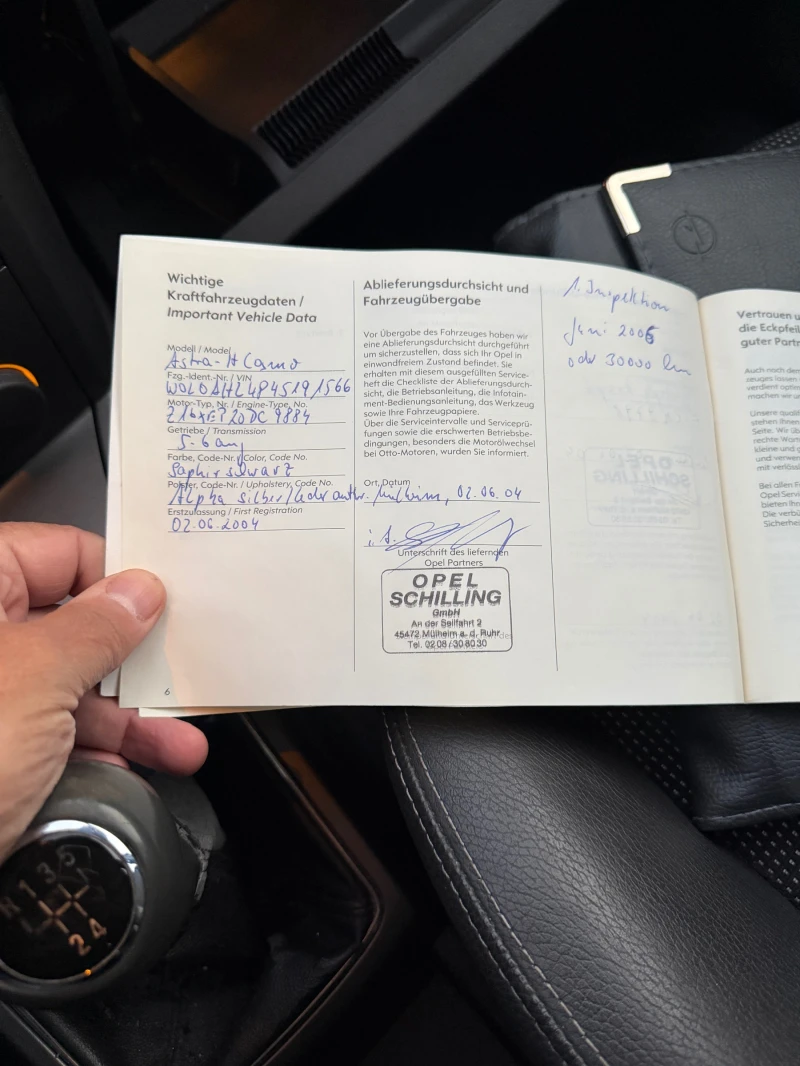 Wichtige
Kraftfahrzeugdaten /
Important Vehicle Data
Modell / Model
Astra-H Cosmo
Fzg.-Ident.-Nr. / VIN
W0L0AHL4845191566
Motor-Typ, Nr. / Engine-Type, No.
Z16XEP 20DC 9884
Getriebe / Transmission
5-Gang
Farbe, Code-Nr. / Color, Code No.
Saphirschwarz
Polster, Code-Nr. / Upholstery, Code No.
Alpha silber/Leder anthr.
Erstzulassung / First Registration
02.06.2004
6
Ablieferungsdurchsicht und
Fahrzeugübergabe
Vor Übergabe des Fahrzeuges haben wir
eine Ablieferungsdurchsicht durchgeführt
um sicherzustellen, dass sich Ihr Opel in
einwandfreiem Zustand befindet. Sie
erhalten mit diesem ausgefüllten Service-
heft die Checkliste der Ablieferungsdurch-
sicht, die Betriebsanleitung, die Infotain-
ment-Bedienungsanleitung, das Werkzeug
sowie Ihre Fahrzeugpapiere.
Über die Serviceintervalle und Serviceprü-
fungen sowie die erschwerten Betriebsbe-
dingungen, besonders die Motorölwechsel
bei Otto-Motoren, wurden Sie informiert.
Ort, Datum
Mülheim, 02.06.04
i.A.
Unterschrift des liefernden
Opel Partners
OPEL
SCHILLING
GmbH
An der Seilfahrt 2
45472 Mülheim a. d. Ruhr
Tel. 02 08 / 30 80 30
1. Inspektion
Juni 2006
oder 30000 km
Vertrauen
die Eckpfeil
guter Partn
Auch nach dem
verdient
machen wir
Unsere
stehen Ihnen
Seite. Wir
rechte
kleine und
und
mit
Bei allen
Opel
bieten Ihn
Die
Sicherhei
1 3
2 4